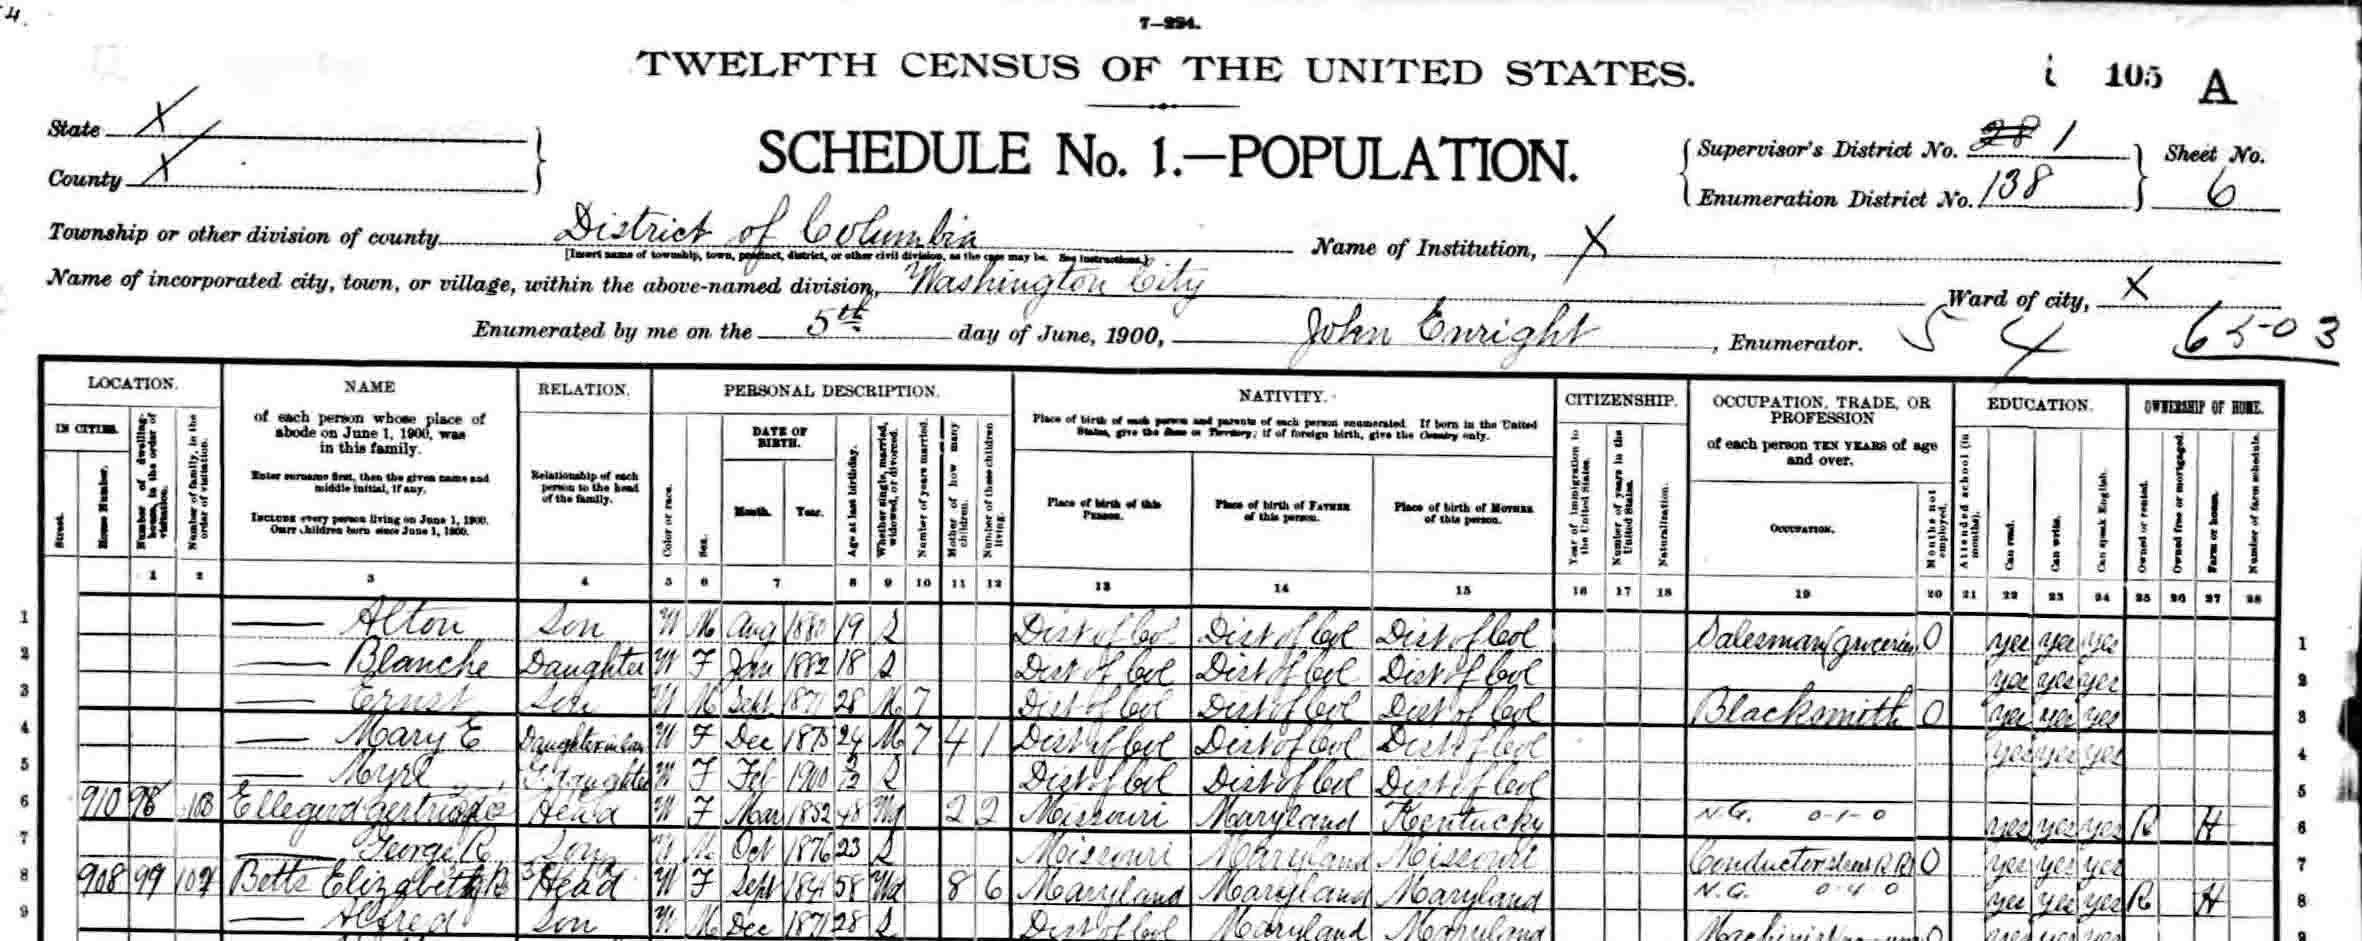 4.
7—224.
TWELFTH CENSUS OF THE UNITED STATES.
i 105 A
State X
County X
SCHEDULE No. 1.—POPULATION.
Supervisor's District No. 28 1
Enumeration District No. 138
Sheet No.
6
Township or other division of county District of Columbia
[Insert name of township, town, precinct, district, or other civil division, as the case may be. See instructions.]
Name of Institution, X
Name of incorporated city, town, or village, within the above-named division, Washington City
Ward of city, X
Enumerated by me on the 5th day of June, 1900, John Enright, Enumerator.
5 4 65-03
LOCATION.
IN CITIES.
Street.
House Number.
Number of dwelling-house, in the order of visitation.
Number of family, in the order of visitation.
NAME
of each person whose place of abode on June 1, 1900, was in this family.
Enter surname first, then the given name and middle initial, if any.
INCLUDE every person living on June 1, 1900.
OMIT children born since June 1, 1900.
RELATION.
Relationship of each person to the head of the family.
PERSONAL DESCRIPTION.
Color or race.
Sex.
DATE OF BIRTH.
Month.
Year.
Age at last birthday.
Whether single, married, widowed, or divorced.
Number of years married.
Mother of how many children.
Number of these children living.
NATIVITY.
Place of birth of each person and parents of each person enumerated. If born in the United States, give the State or Territory; if of foreign birth, give the Country only.
Place of birth of this PERSON.
Place of birth of FATHER of this person.
Place of birth of MOTHER of this person.
CITIZENSHIP.
Year of immigration to the United States.
Number of years in the United States.
Naturalization.
OCCUPATION, TRADE, OR PROFESSION
of each person TEN YEARS of age and over.
OCCUPATION.
Months not employed.
EDUCATION.
Attended school (in months).
Can read.
Can write.
Can speak English.
OWNERSHIP OF HOME.
Owned or rented.
Owned free or mortgaged.
Farm or house.
Number of farm schedule.
1 2 3 4 5 6 7 8 9 10 11 12 13 14 15 16 17 18 19 20 21 22 23 24 25 26 27 28
1 — Alton Son W M Aug 1880 19 S Dist of Col Dist of Col Dist of Col Salesman (groceries) 0 yes yes yes 1
2 — Blanche Daughter W F Jan 1882 18 S Dist of Col Dist of Col Dist of Col yes yes yes 2
3 — Ernst Son W M Sept 1871 28 M 7 Dist of Col Dist of Col Dist of Col Blacksmith 0 yes yes yes 3
4 — Mary E Daughter in law W F Dec 1875 24 M 7 4 1 Dist of Col Dist of Col Dist of Col yes yes yes 4
5 — Myrl G. daughter W F Feb 1900 S Dist of Col Dist of Col Dist of Col 5
6 910 98 103 Head W F Mar 1852 48 Wd 2 2 Missouri Maryland Kentucky N.G. 0-1-0 yes yes yes R H 6
7 — George R Son W M Oct 1876 23 S Missouri Maryland Missouri Conductor 0 yes yes yes 7
8 908 99 104 Betts Elizabeth R Head W F Sept 1841 58 Wd 8 6 Maryland Maryland Maryland N.G. 0 4 0 yes yes yes R H 8
9 — Alfred Son W M Dec 1871 28 S Dist of Col Maryland Maryland Machinist 0 yes yes yes 9